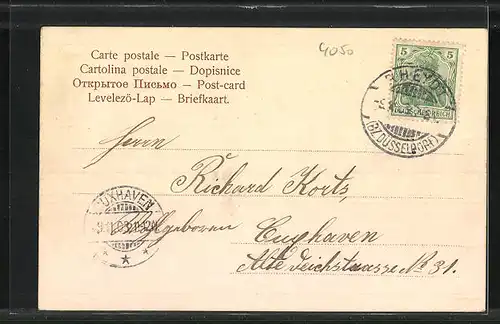 4050
Carte postale — Postkarte
Cartolina postale — Dopisnice
Открытое Письмо — Post-card
Levelező-Lap — Briefkaart.
5 5
REICH
RHEYDT
(BZ. DÜSSELDORF)
Herrn
Richard Korts,
CUXHAVEN
Wohlgeboren
Cuxhaven
Alte Deichstrasse No 31.